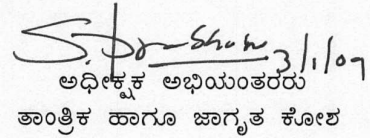 3/1/09
ಅಧೀಕ್ಷಕ ಅಭಿಯಂತರರು
ತಾಂತ್ರಿಕ ಹಾಗೂ ಜಾಗೃತ ಕೋಶ